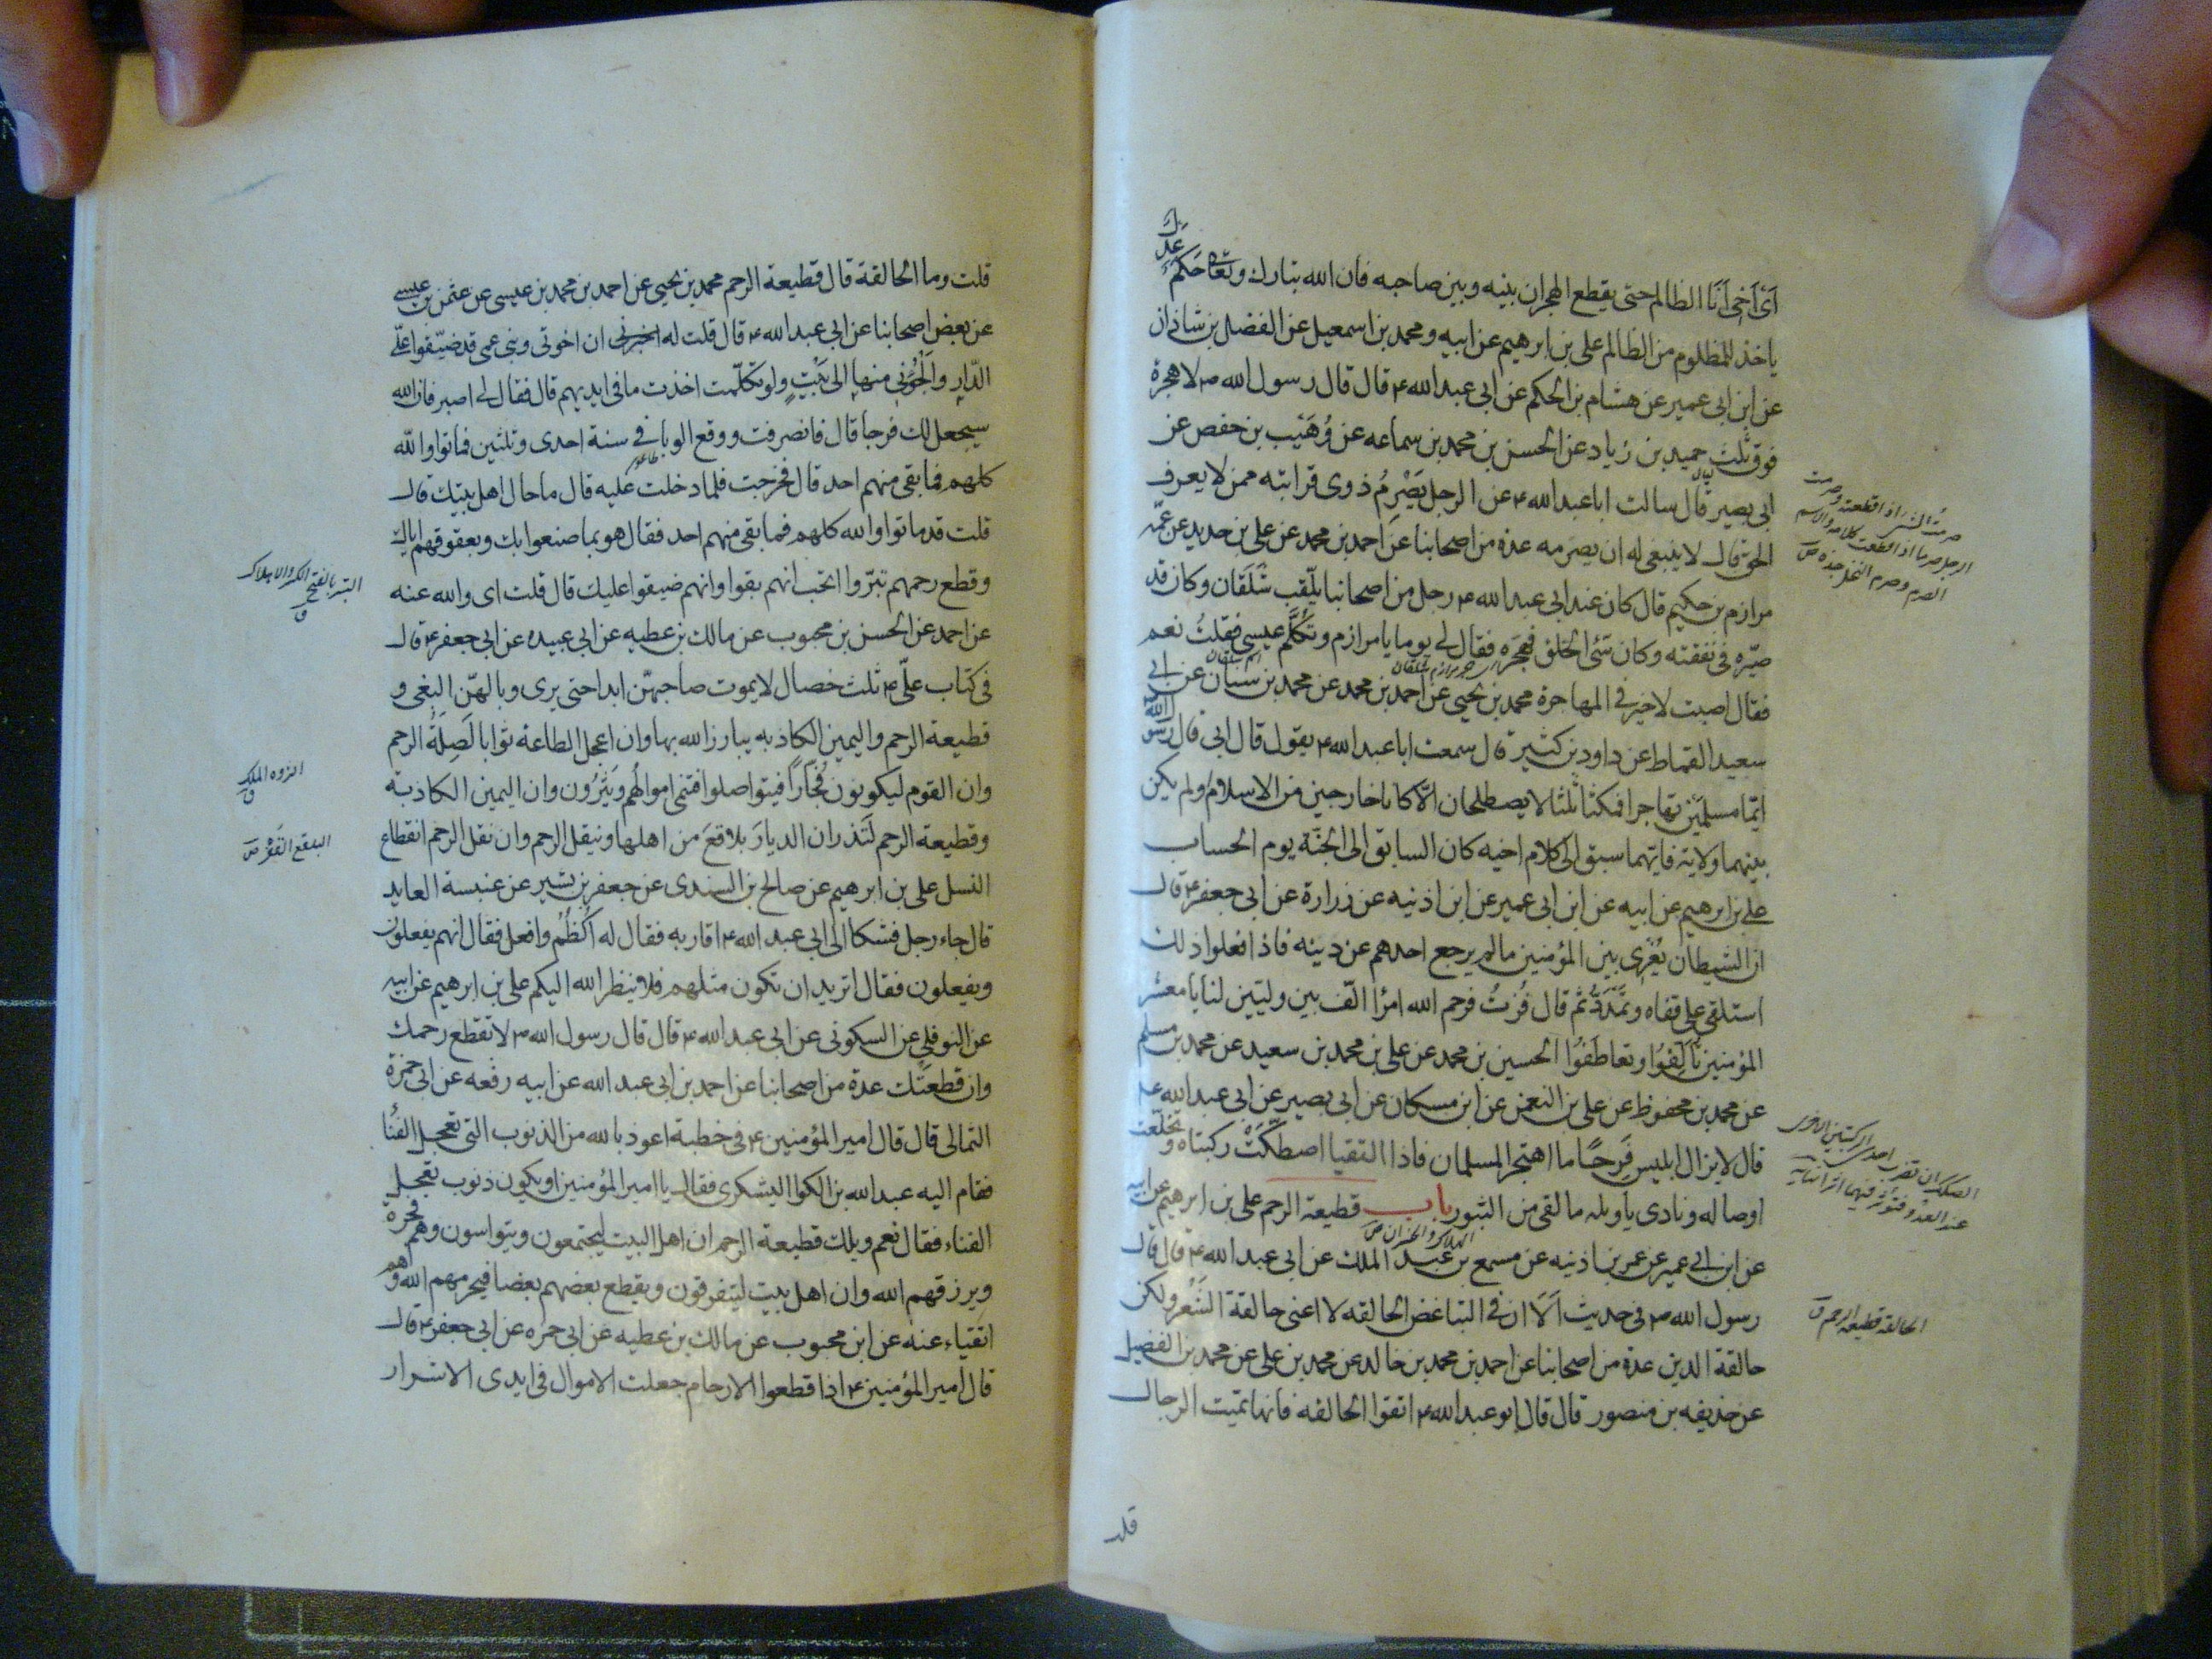 اَىْ اَخِى اَنَا الظالم حتى يقطع الهجران بينه وبين صاحبه فان الله تبارك وتعالى حَكَمٌ عَدْلٌ
ياخذ للمظلوم من الظالم على بن ابرهيم عن ابيه ومحمد بن اسمعيل عن الفضل بن شاذان
عن ابن ابى عمير عن هشام بن الحكم عن ابى عبد الله ع قال قال رسول الله ص لا هجرة
فوق ثلث حميد بن زياد عن الحسن بن محمد بن سماعه عن وُهَيْب بن حفص عن
ابى بصير قال سالت ابا عبد الله ع عن الرجل يَصْرِمُ ذوى قرابته ممن لا يعرف
الحق قال لا ينبغى له ان يصرمه عدة من اصحابنا عن احمد بن محمد عن على بن حديد عن عمّه
مرازم بن حكيم قال كان عند ابى عبد الله ع رجل من اصحابنا يلقّب شَلَقَان وكان قد
صيّره فى نفقته وكان سَيّئ الخلق فهَجَره فقال لى يوما يا مرازم وتُكَلِّم عيسى فقلتُ نعم
فقال اصبت لا خير فى المهاجرة محمد بن يحيى عن احمد بن محمد عن محمد بن سنان عن ابى
سعيد القماط عن داود بن كثير قال سمعت ابا عبد الله ع يقول قال ابى قال رسول الله
ايّما مسلمَيْن تهاجرا فمكثا ثلثا لا يصطلحان الّا كانا خارجين من الاسلام ولم يكن
بينهما ولاية فايّهما سبق الى كلام اخيه كان السابق الى الجنّة يوم الحساب
على بن ابرهيم عن ابيه عن ابن ابى عمير عن ابن اذينه عن زرارة عن ابى جعفر ع قال
ان الشيطان يُغْرِى بين المؤمنين ما لم يرجع احدهم عن دينه فاذا فعلوا ذلك
استلقى على قفاه وتَمَدَّدَ ثم قال فُزتُ فرحم الله امرأ الّف بين وليّين لنا يا معشر
المؤمنين تَاَلَفُوا وتعاطَفُوا الحسين بن محمد عن على بن محمد بن سعيد عن محمد بن مسلم
عن محمد بن محفوظ عن على بن النعمن عن ابن مسكان عن ابى بصير عن ابى عبد الله ع
قال لا يزال ابليس فَرِحًا ما اهتجر المسلمان فاذا التقيا اصطَكَّتْ ركبتاه وتخلّعت
اوصاله ونادى يا ويله ما لقى من الثبور باب قطيعة الرحم على بن ابرهيم عن ابيه
عن ابن ابى عمير عن عمر بن اذينه عن مسمع بن عبد الملك عن ابى عبد الله ع قال قال
رسول الله ص فى حديث اَلَا ان فى التباغض الحالقه لا اعنى حالقة الشَعْر ولكن
حالقة الدين عدة من اصحابنا عن احمد بن محمد بن خالد عن محمد بن على عن محمد بن الفضيل
عن حذيفه بن منصور قال قال ابو عبد الله ع اتقوا الحالقه فانها تميت الرجال
صرمتُ الشئ اذا قطعته وصرمت
الرجل صرما اذا قطعت كلامه والاسم
الصرم وصرم النخل جذه ص
الصكك ان تضرب احدى الركبتين الاخرى
عند العدو فتؤثر فيهما اثرا
الهلاك والخسران ص
الحالقه قطيعة الرحم ق
قلت وما الحالقة قال قطيعة الرحم محمد بن يحيى عن احمد بن محمد بن عيسى عن عثمن بن عيسى
عن بعض اصحابنا عن ابى عبد الله ع قال قلت له ان اخوتى وبنى عمى قد ضيّقوا علىّ
الدّار واَلْجَؤُنى منها الى بَيْتٍ ولو تكلّمت اخذت ما فى ايديهم قال فقال لى اصبر فان الله
سيجعل لك فرجا قال فانصرفت ووقع الوبا فى سنة احدى وثلثين فماتوا والله
كلهم فما بقى منهم احد قال فخرجت فلما دخلت عليه قال ما حال اهل بيتك قال
قلت قد ماتوا والله كلهم فما بقى منهم احد فقال هو بما صنعوا بك وبعقوقهم اياك
وقطع رحمهم تبّروا اتحب انهم بقوا وانهم ضيقوا عليك قال قلت اى والله عنه
عن احمد عن الحسن بن محبوب عن مالك بن عطيه عن ابى عبيده عن ابى جعفر ع قال
فى كتاب علىّ ع ثلث خصال لا يموت صاحبهنّ ابدا حتى يرى وبالهنّ البغى و
قطيعة الرحم واليمين الكاذبه يبارز الله بها وان اعجل الطاعة ثوابا لَصِلَةُ الرحم
وان القوم ليكونون فُجّارًا فيتواصلوا فتنمى اموالُهم ويَثْرُون وان اليمين الكاذبة
وقطيعة الرحم لَتَذران الديارَ بلاقعَ من اهلها وتنقل الرحم وان نقل الرحم انقطاع
النسل على بن ابرهيم عن صالح بن السندى عن جعفر بن بشير عن عنبسة العابد
قال جاء رجل فشكا الى ابى عبد الله ع اقاربه فقال له اُكْظُمْ وافعل فقال انهم يفعلون
ويفعلون فقال اتريد ان تكون مثلهم فلا ينظر الله اليكم على بن ابرهيم عن ابيه
عن النوفلى عن السكونى عن ابى عبد الله ع قال قال رسول الله ص لا تقطع رحمك
وان قطعتك عدة من اصحابنا عن احمد بن ابى عبد الله عن ابيه رفعه عن ابى حمزة
الثمالى قال قال امير المؤمنين ع فى خطبة اعوذ بالله من الذنوب التى تعجل الفناء
فقام اليه عبد الله بن الكوا اليشكرى فقال يا امير المؤمنين او يكون ذنوب تعجل
الفناء فقال نعم ويلك قطيعة الرحم ان اهل البيت ليجتمعون ويتواسون وهم فجرة
ويرزقهم الله وان اهل بيت ليتفرقون ويقطع بعضهم بعضا فيحرمهم الله وهم
اتقياء عنه عن ابن محبوب عن مالك بن عطيه عن ابى حمزه عن ابى جعفر ع قال
قال امير المؤمنين ع اذا قطعوا الارحام جعلت الاموال فى ايدى الاشرار
طاعون
التبر بالفتح الكسر والاهلاك
ق
البلقع القَفْر ص